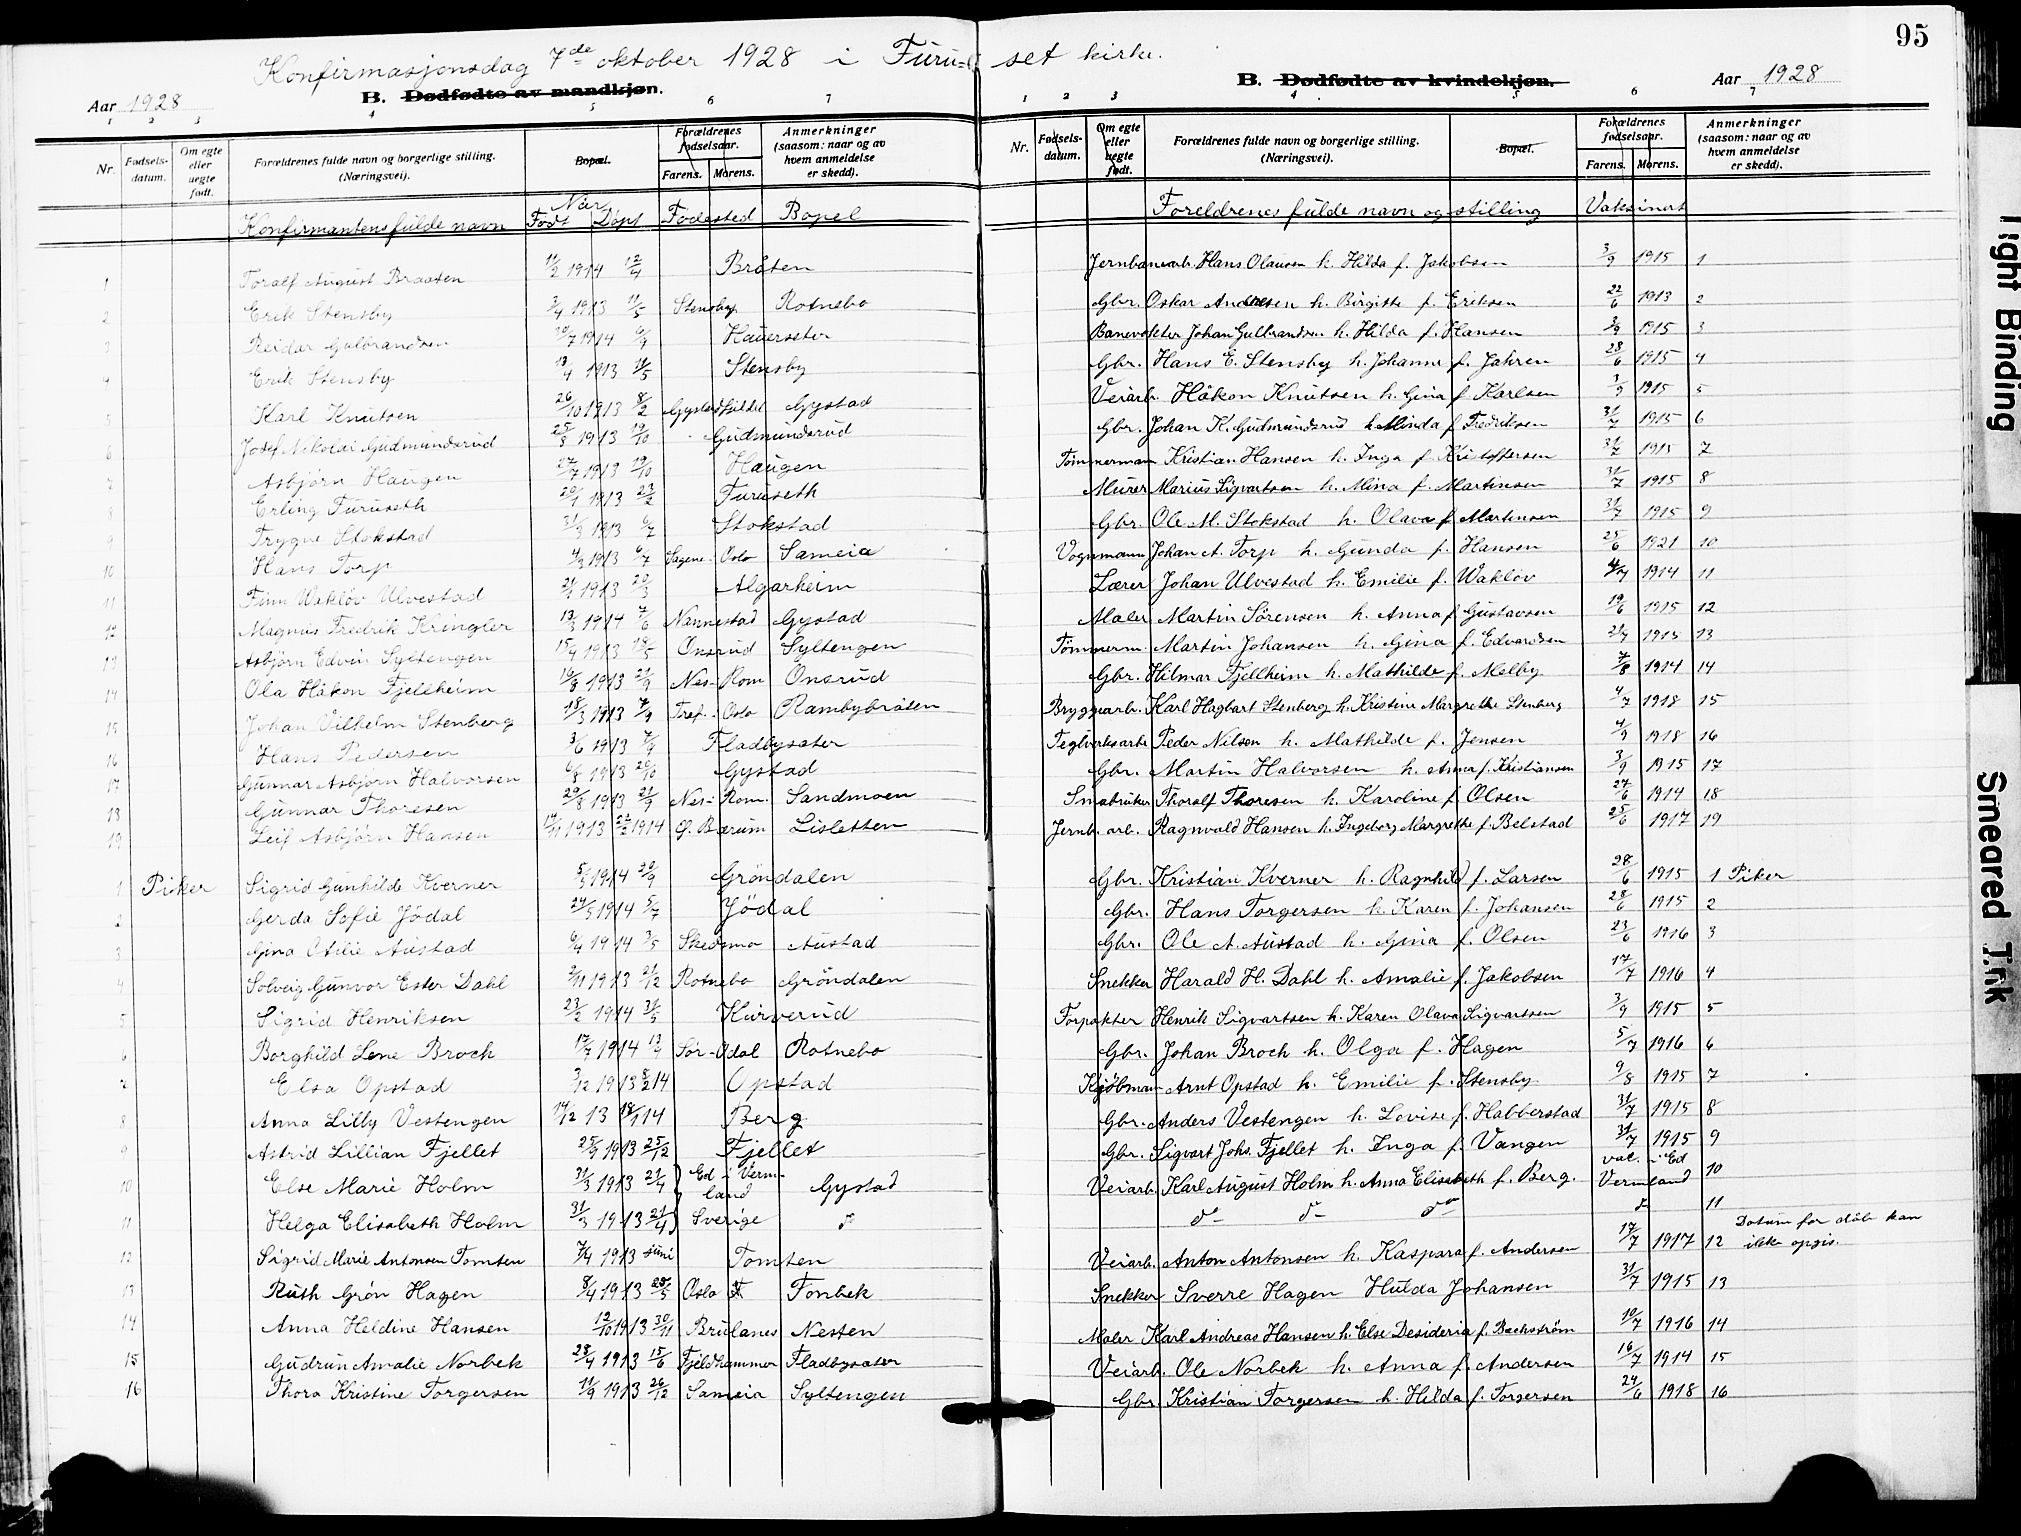 95
Konfirmasjonsdag 7de oktober 1928 i Furu= set kirke.
B. Dødfødte av mandkjøn.
B. Dødfødte av kvindekjøn.
Aar 1928
Aar 1928
1 2 3 4 5 6 7
1 2 3 4 5 6 7
Nr. Fødsels-datum. Om egte eller uegte født. Forældrenes fulde navn og borgerlige stilling. (Næringsvei). Bopæl. Forældrenes fødselsaar. Farens. Morens. Anmerkninger (saasom: naar og av hvem anmeldelse er skedd).
Nr. Fødsels-datum. Om egte eller uegte født. Forældrenes fulde navn og borgerlige stilling. (Næringsvei). Bopæl. Forældrenes fødselsaar. Farens. Morens. Anmerkninger (saasom: naar og av hvem anmeldelse er skedd).
Konfirmantens fulde navn Når Født Döpt Födested Bopel Foreldrenes fulde navn og stilling Vaksinert
1 Toralf August Braaten 11/2 1914 12/4 Bråten Jernbanearb. Hans Olausen h. Hilda f. Jakobsen 3/9 1915 1
2 Erik Stensby 3/4 1913 11/5 Stensby Rotnebo Gbr. Oskar Andresen h. Birgitte f. Eriksen 22/6 1913 2
3 Reidar Gulbrandsen 20/7 1914 6/9 Hauerseter Banevokter Johan Gulbrandsen h. Hilda f. Hansen 3/9 1915 3
4 Erik Stensby 13/4 1913 11/5 Stensby Gbr. Hans E. Stensby h. Johanne f. Jahren 28/6 1915 4
5 Karl Knutsen 26/10 1913 8/2 Gystad Veiarb. Håkon Knutsen h. Gina f. Karlsen 3/9 1915 5
6 Josef Nikolai Gudmundsrud 25/8 1913 19/10 Gudmundsrud Gbr. Johan K. Gudmundsrud h. Minda f. Fredriksen 31/7 1915 6
7 Asbjörn Haugen 27/7 1913 19/10 Haugen Tömmermann Kristian Hansen h. Inga f. Kristoffersen 31/7 1915 7
8 Erling Furuseth 20/1 1913 23/2 Furuseth Murer Marius Sigvartsen h. Mina f. Martinsen 31/7 1915 8
9 Trygve Stokstad 31/3 1913 6/7 Stokstad Gbr. Ole M. Stokstad h. Olava f. Martinsen 31/7 1915 9
10 Hans Torp 4/3 1913 6/7 Sagene. Oslo Sameia Vognmann Johan A. Torp h. Gunda f. Hansen 25/6 1921 10
11 Finn Waklöv Ulvestad 21/1 1913 20/3 Algarheim Lærer Johan Ulvestad h. Emilie f. Waklöv 1914 11
12 Magnus Fredrik Kringler 13/3 1914 7/6 Nannestad Gystad Maler Martin Sörensen h. Anna f. Gustavsen 19/6 1915 12
13 Asbjörn Edvin Syltengen 15/4 1913 18/5 Onsrud Syltengen Tömmerm. Martin Johansen h. Gina f. Edvardsen 21/7 1915 13
14 Ola Håkon Fjellheim 16/8 1913 21/9 Nes-Rom Onsrud Gbr. Hilmar Fjellheim h. Mathilde f. Melby 7/8 1914 14
15 Johan Vilhelm Stenberg 18/3 1913 7/9 Tref. Oslo Rambybråten Bryggearb. Karl Hagbart Stenberg h. Kristine Margrethe Stenberg 4/7 1918 15
16 Hans Pedersen 3/6 1913 7/9 Fladbyseter Teglverksarb. Peder Nilsen h. Mathilde f. Jensen 4/9 1918 16
17 Gunnar Asbjörn Halvorsen 6/8 1913 20/10 Gystad Gbr. Martin Halvorsen h. Anna f. Kristiansen 3/9 1915 17
18 Gunnar Thoresen 29/8 1913 21/9 Nes-Rom. Sandmoen Småbruker Thoralf Thoresen h. Karoline f. Olsen 27/6 1914 18
19 Leif Asbjörn Hansen 14/11 1913 22/2 1914 Ö. Bærum Lisletten Jernb. arb. Ragnvald Hansen h. Ingeborg Margrethe f. Belstad 25/6 1917 19
1 Piker Sigrid Gunhilde Kverner 5/5 1914 20/9 Gröndalen Gbr. Kristian Kverner h. Ragnhild f. Larsen 28/6 1915 1 Piker
2 Gerda Sofie Jödal 24/5 1914 5/7 Jödal Gbr. Hans Torgersen h. Karen f. Johansen 28/6 1915 2
3 Gina Otilie Austad 6/4 1914 3/5 Skedsmo Austad Gbr. Ole A. Austad h. Gina f. Olsen 23/6 1916 3
4 Solveig Gunvor Ester Dahl 2/11 1913 21/12 Rotnebo Gröndalen Snekker Harald H. Dahl h. Amalie f. Jakobsen 17/7 1916 4
5 Sigrid Henriksen 23/2 1914 31/5 Kurverud Forpakter Henrik Sigvartsen h. Karen Olava Sigvartsen 3/9 1915 5
6 Borghild Lene Broch 17/7 1914 Sör-Odal Rotnebo Gbr. Johan Broch h. Olga f. Hagen 5/7 1916 6
7 Elsa Opstad 3/12 1913 8/2 14 Opstad Kjöbmann Arnt Opstad h. Emilie f. Stensby 9/8 1915 7
8 Anna Lilly Vestengen 14/12 13 18/1 14 Berg Gbr. Anders Vestengen h. Lovise f. Habberstad 31/7 1915 8
9 Astrid Lillian Fjellet 25/9 1913 25/12 Fjellet Gbr. Sigvart Johs. Fjellet h. Inga f. Vangen 31/7 1915 9
10 Else Marie Holm 31/3 1913 21/4 Ed i Vermland Gystad Veiarb. Karl August Holm h. Anna Elisabeth f. Berg. vac. i Ed Vermland 10
11 Helga Elisabeth Holm 31/3 1913 21/4 Sverige do do do do do 11
12 Sigrid Marie Antonsen Tomten 7/4 1913 juni Tomten Veiarb. Anton Antonsen h. Kaspara f. Andersen 17/7 1917 12 Datum for dåb kan ikke opgis.
13 Ruth Grön Hagen 8/4 1913 25/5 Oslo Fonbek Snekker Sverre Hagen Hulda Johansen 31/7 1915 13
14 Anna Heldine Hansen 12/10 1913 30/11 Brulanes Nesten Maler Karl Andreas Hansen h. Else Desideria f. Bachström 10/7 1916 14
15 Gudrun Amalie Norbek 28/4 1913 15/6 Fjeldhammer Fladbyseter Veiarb. Ole Norbek h. Anna f. Andersen 16/7 1914 15
16 Thora Kristine Torgersen 11/9 1913 26/12 Sameia Syltengen Gbr. Kristian Torgersen h. Hilda f. Torgersen 24/6 1918 16
Tight Binding
Smeared